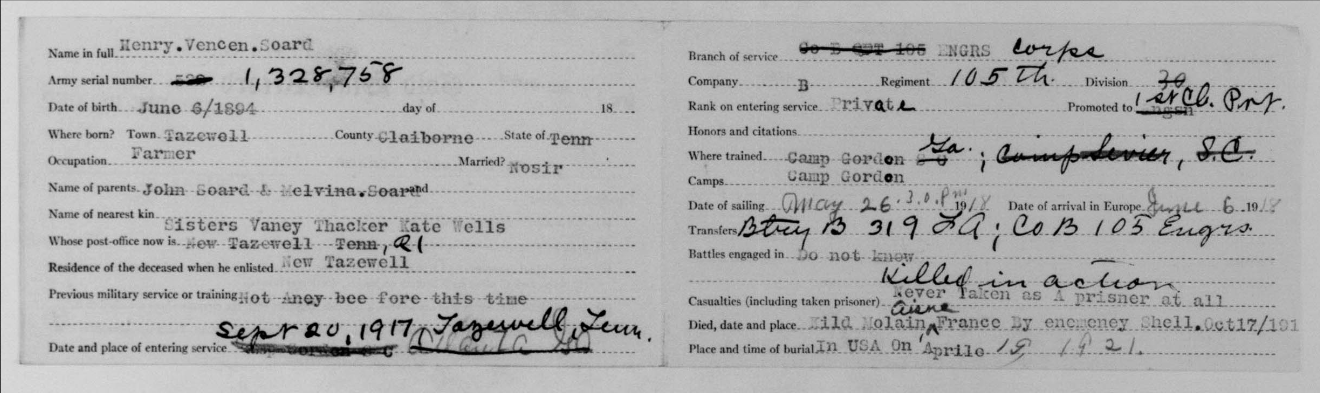 Name in full Henry.Vencen.Soard
Army serial number 1,328,758
Date of birth June 6/1894 day of 18
Where born? Town Tazewell County Claiborne State of Tenn
Occupation Farmer Married? Nosir
Name of parents. John Soard & Melvina.Soard and
Name of nearest kin Sisters Vaney Thacker Kate Wells
Whose post-office now is. New Tazewell Tenn, R1
Residence of the deceased when he enlisted New Tazewell
Previous military service or training Not Aney bee fore this time
Sept 20, 1917, Tazewell, Tenn.
Date and place of entering service Atlanta Ga
Branch of service Co B 105 ENGRS Corps
Company B Regiment 105th. Division 30
Rank on entering service Private Promoted to 1st Cl. Pvt.
Honors and citations
Where trained Camp Gordon Ga. ; Camp Sevier, S.C.
Camps Camp Gordon
Date of sailing May 26. 3.0.Pm 1918 Date of arrival in Europe June 6 1918
Transfers Btry B 319 FA; Co B 105 Engrs.
Battles engaged in Do not know
Killed in action
Casualties (including taken prisoner) Never Taken as A prisner at all
Aisne
Died, date and place Kild Molain France By enemeney Shell.Oct17/191
Place and time of burial In USA On Aprile 19 1921.